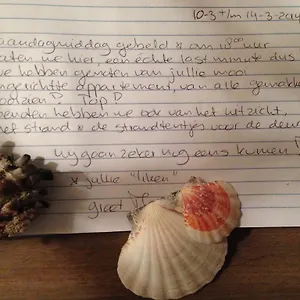 10-3 t/m 14-3-2014
aandagmiddag gebeld & om 18⁰⁰ uur
aten we hier, een échte last minute dus
we hebben genoten van jullie mooi
ngerichtte appartement, van alle gemakken
oorzien! Top!
genoten hebben we ook van het uitzicht,
et strand & de strandtentjes voor de deur
wij gaan zeker nog eens komen!
* jullie "liken"
groet